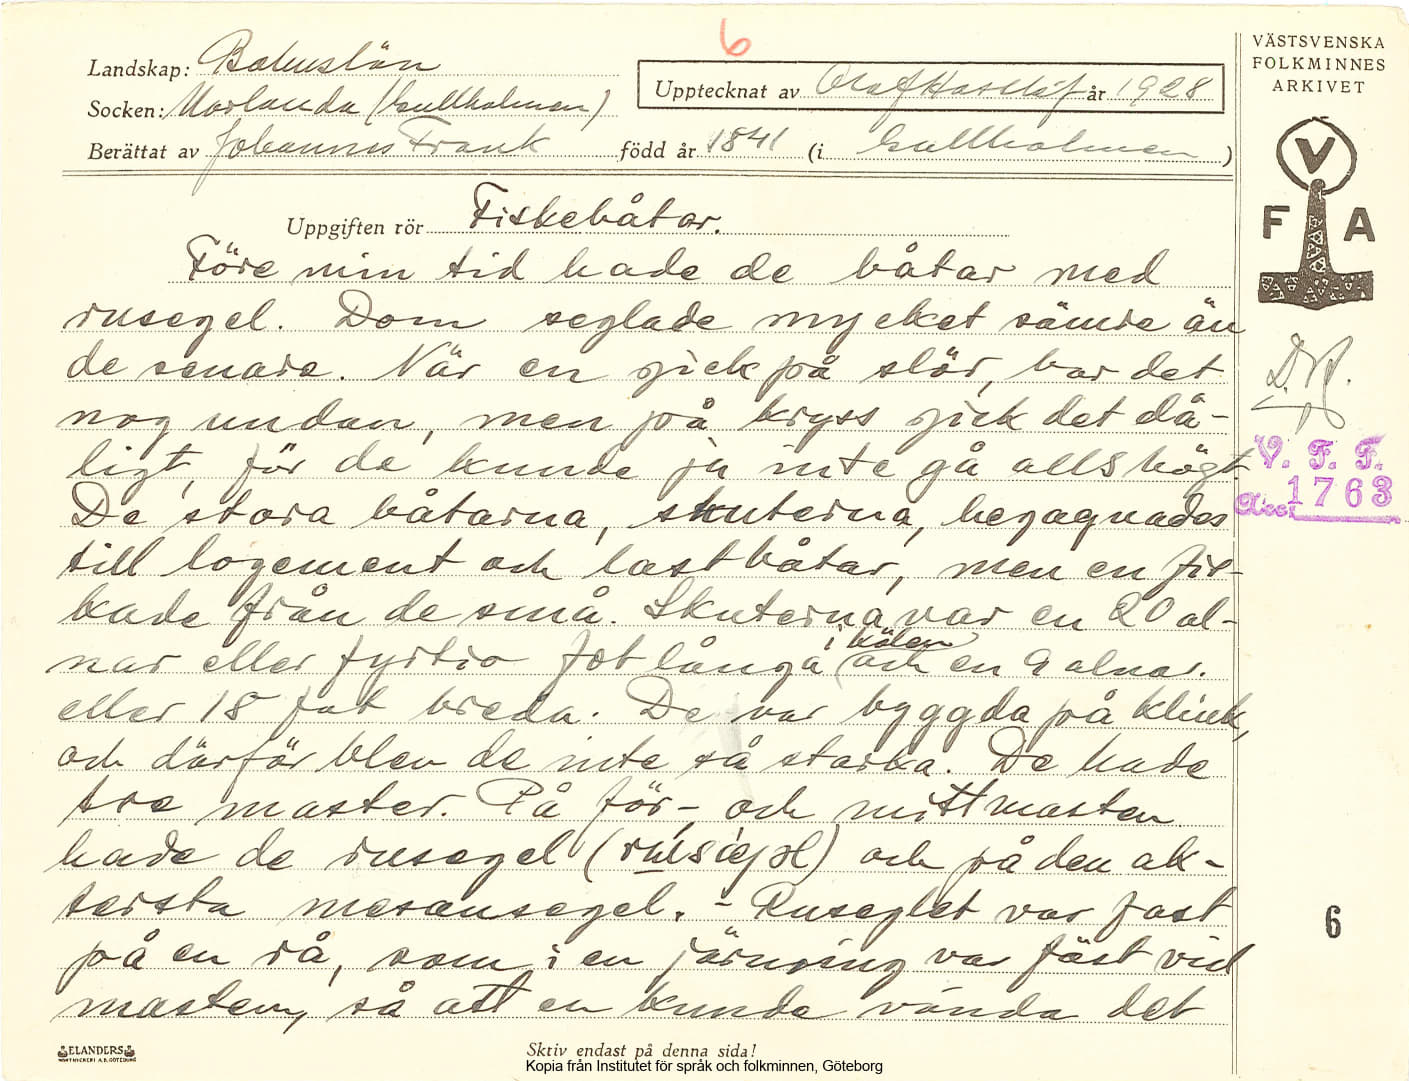 6
Landskap: Bohuslän
Socken: Morlanda (Gullholmen)
Upptecknat av Olof Hasslöf år 1928
Berättat av Johannes Frank född år 1841 (i Gullholmen)
VÄSTSVENSKA
FOLKMINNES
ARKIVET
V
F A
Uppgiften rör Fiskebåtar.
Före min tid hade de båtar med
rusegel. Dom seglade mycket sämre än
de senare. När en gick på slör, bar det
nog undan, men på kryss gick det då-
ligt, för de kunde ju inte gå alls högt.
De stora båtarna, skuterna, begagnades
till logement och lastbåtar, men en fis-
kade från de små. Skuterna var en 20 al-
nar eller fyrtio fot långa i kölen och en 9 alnar.
eller 18 fot breda. De var byggda på klink,
och därför blev de inte så starka. De hade
tre master. På för- och mittmasten
hade de rusegel () och på den ak-
tersta mesansegel. - Ruseglet var fast
på en rå, som i en järnring var fäst vid
masten, så att en kunde vända det
V. F. F.
Acc. 1763
6
ELANDERS
BOKTRYCKERI A.B. GÖTEBORG
Skriv endast på denna sida!
Kopia från Institutet för språk och folkminnen, Göteborg